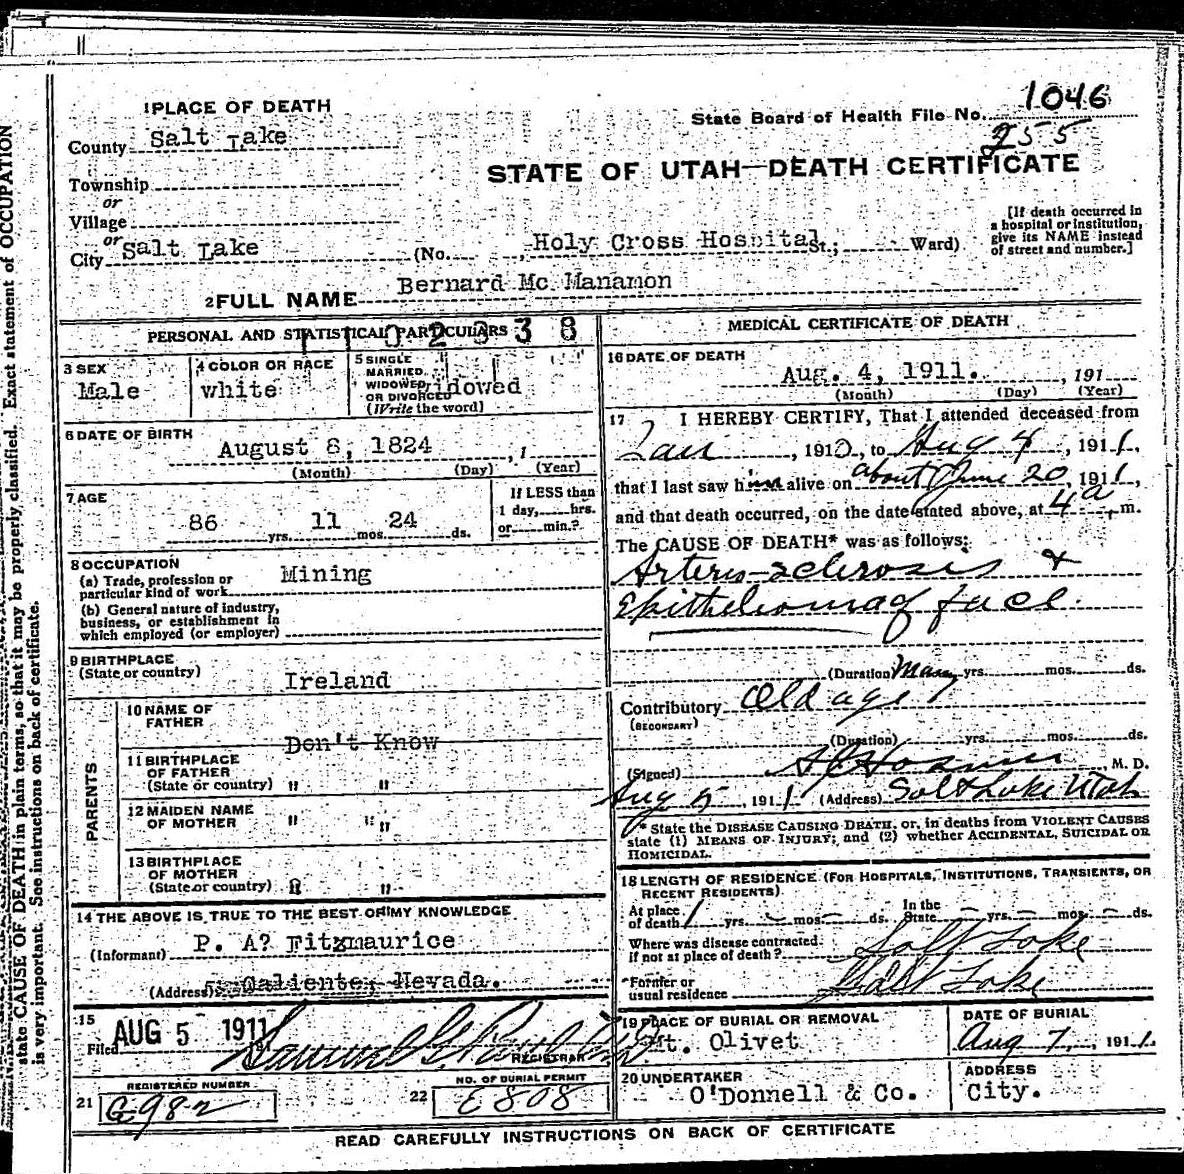 state CAUSE OF DEATH in plain terms, so that it may be properly classified. Exact statement of OCCUPATION
is very important. See instructions on back of certificate.
1 PLACE OF DEATH
State Board of Health File No. 1046
255
County Salt Lake
STATE OF UTAH—DEATH CERTIFICATE
Township
or
Village
or
City Salt Lake (No. , Holy Cross Hospital St.; Ward)
[If death occurred in
a hospital or institution,
give its NAME instead
of street and number.]
2 FULL NAME Bernard Mc Manamon
PERSONAL AND STATISTICAL PARTICULARS
3 SEX
Male
4 COLOR OR RACE
white
5 SINGLE
MARRIED
WIDOWED
OR DIVORCED
(Write the word)
widowed
6 DATE OF BIRTH
August 8, 1824 , 1
(Month) (Day) (Year)
7 AGE
86 yrs. 11 mos. 24 ds.
If LESS than
1 day, hrs.
or min.?
8 OCCUPATION
(a) Trade, profession or
particular kind of work Mining
(b) General nature of industry,
business, or establishment in
which employed (or employer)
9 BIRTHPLACE
(State or country) Ireland
PARENTS
10 NAME OF
FATHER
Don't Know
11 BIRTHPLACE
OF FATHER
(State or country) " "
12 MAIDEN NAME
OF MOTHER " "
13 BIRTHPLACE
OF MOTHER
(State or country) " "
14 THE ABOVE IS TRUE TO THE BEST OF MY KNOWLEDGE
(Informant) P. A? Fitzmaurice
(Address) Caliente, Nevada.
15
Filed AUG 5 1911
REGISTRAR
REGISTERED NUMBER
21 G982
NO. OF BURIAL PERMIT
22 E808
MEDICAL CERTIFICATE OF DEATH
16 DATE OF DEATH
Aug. 4, 1911. , 191
(Month) (Day) (Year)
17 I HEREBY CERTIFY, That I attended deceased from
Jan , 1910, to Aug 4 , 1911,
that I last saw him alive on about June 20, 1911,
and that death occurred, on the date stated above, at 4 a m.
The CAUSE OF DEATH* was as follows:
Arterio-sclerosis &
Epithelioma of face
(Duration) Many yrs. mos. ds.
Contributory Old age
(SECONDARY)
(Duration) yrs. mos. ds.
(Signed) M. D.
Aug 5, 1911 (Address) Salt Lake Utah
* State the DISEASE CAUSING DEATH, or, in deaths from VIOLENT CAUSES
state (1) MEANS OF INJURY; and (2) whether ACCIDENTAL, SUICIDAL OR
HOMICIDAL.
18 LENGTH OF RESIDENCE (FOR HOSPITALS, INSTITUTIONS, TRANSIENTS, OR
RECENT RESIDENTS)
At place
of death 1 yrs. – mos. – ds. In the
State – yrs. – mos. – ds.
Where was disease contracted
if not at place of death? Salt Lake
Former or
usual residence Salt Lake
19 PLACE OF BURIAL OR REMOVAL
Mt. Olivet
DATE OF BURIAL
Aug 7, 1911.
20 UNDERTAKER
O'Donnell & Co.
ADDRESS
City.
READ CAREFULLY INSTRUCTIONS ON BACK OF CERTIFICATE